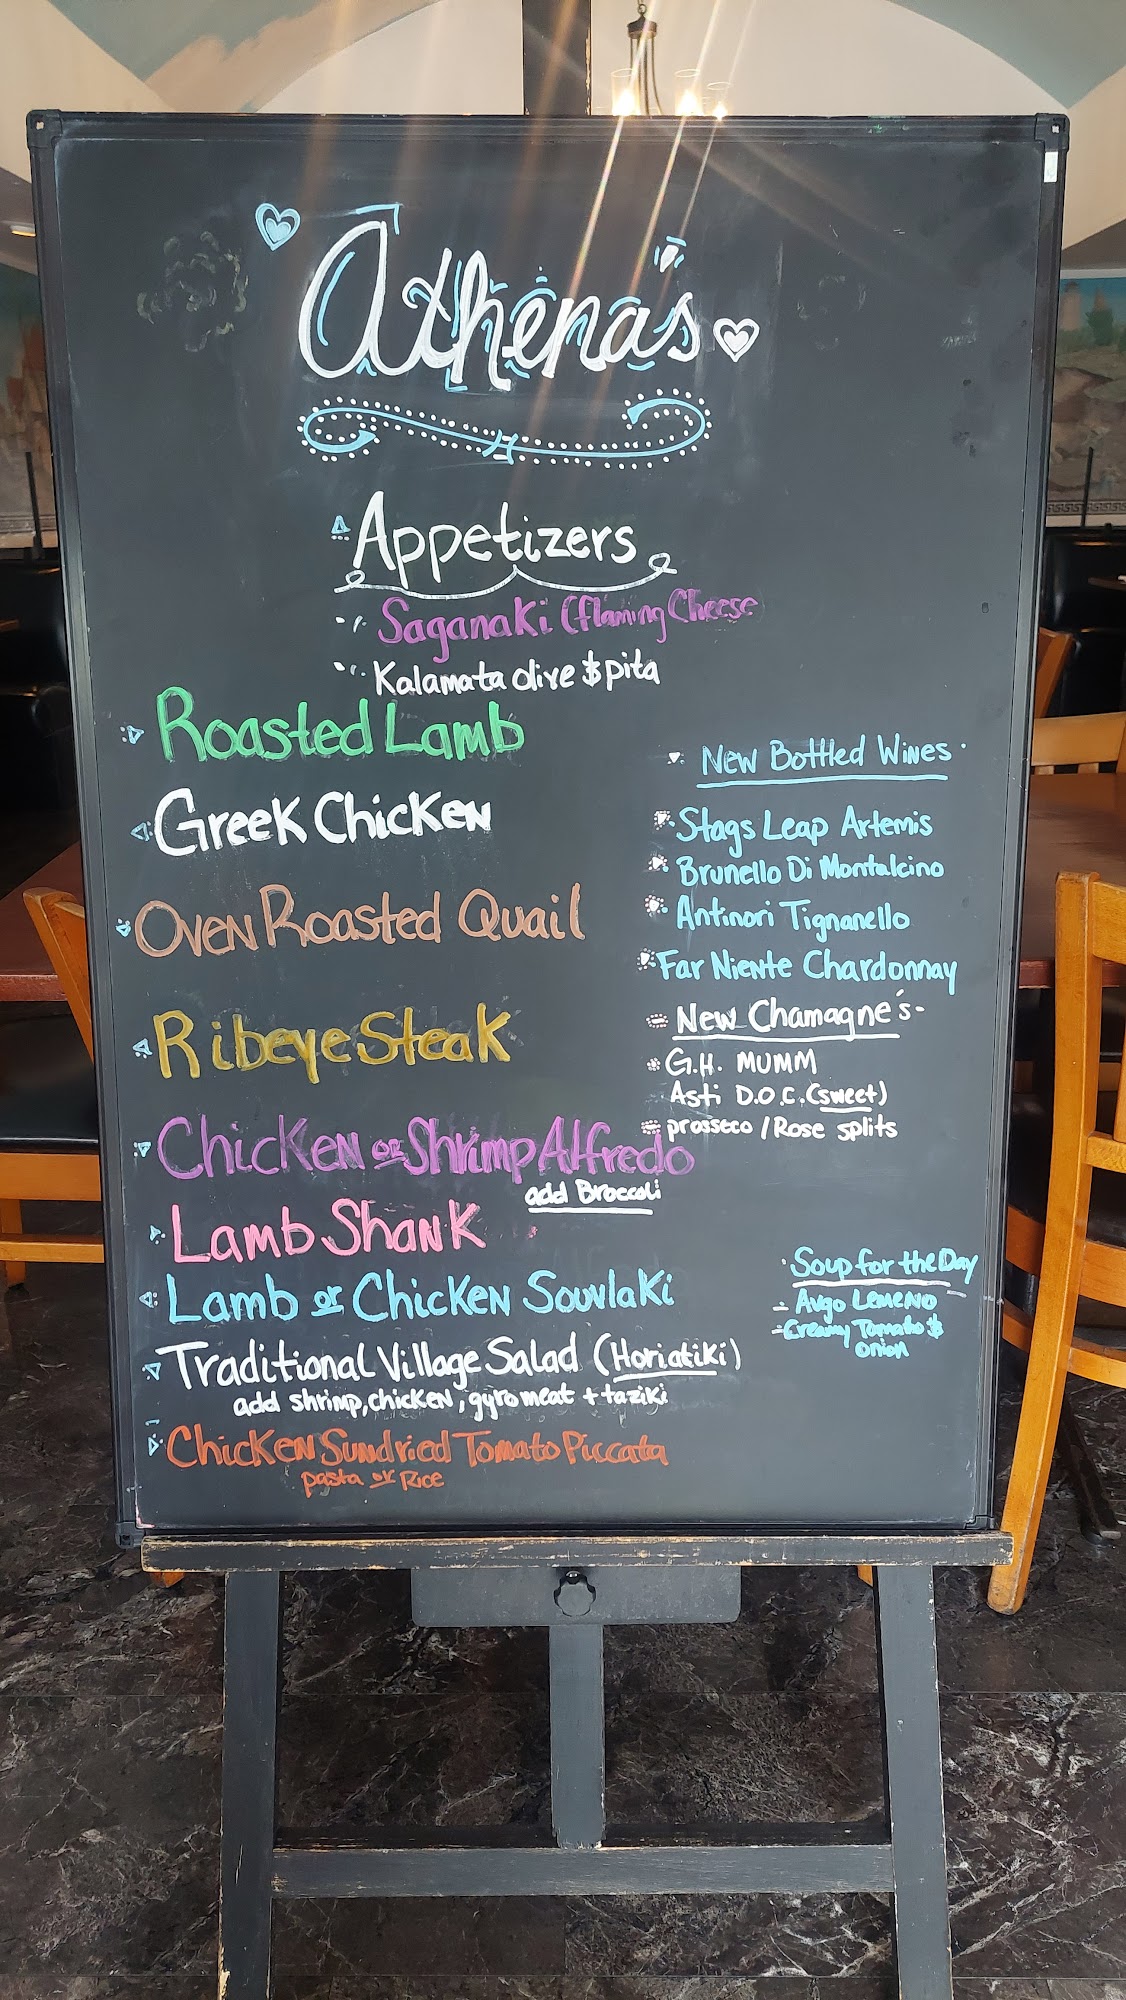 Athena's
Appetizers
Saganaki (flaming Cheese
Kalamata olive & pita
Roasted Lamb
Greek Chicken
Oven Roasted Quail
Ribeye Steak
Chicken or Shrimp Alfredo
add Broccoli
Lamb Shank
Lamb or Chicken Souvlaki
Traditional Village Salad (Horiatiki)
add shrimp, chicken, gyro meat + taziki
Chicken Sundried Tomato Piccata
pasta or Rice
New Bottled Wines
Stags Leap Artemis
Brunello Di Montalcino
Antinori Tignanello
Far Niente Chardonnay
New Chamagne's
G.H. MUMM
Asti D.O.C. (sweet)
prosseco / Rose splits
Soup for the Day
- Avgo Lemeno
- Creamy Tomato &
onion